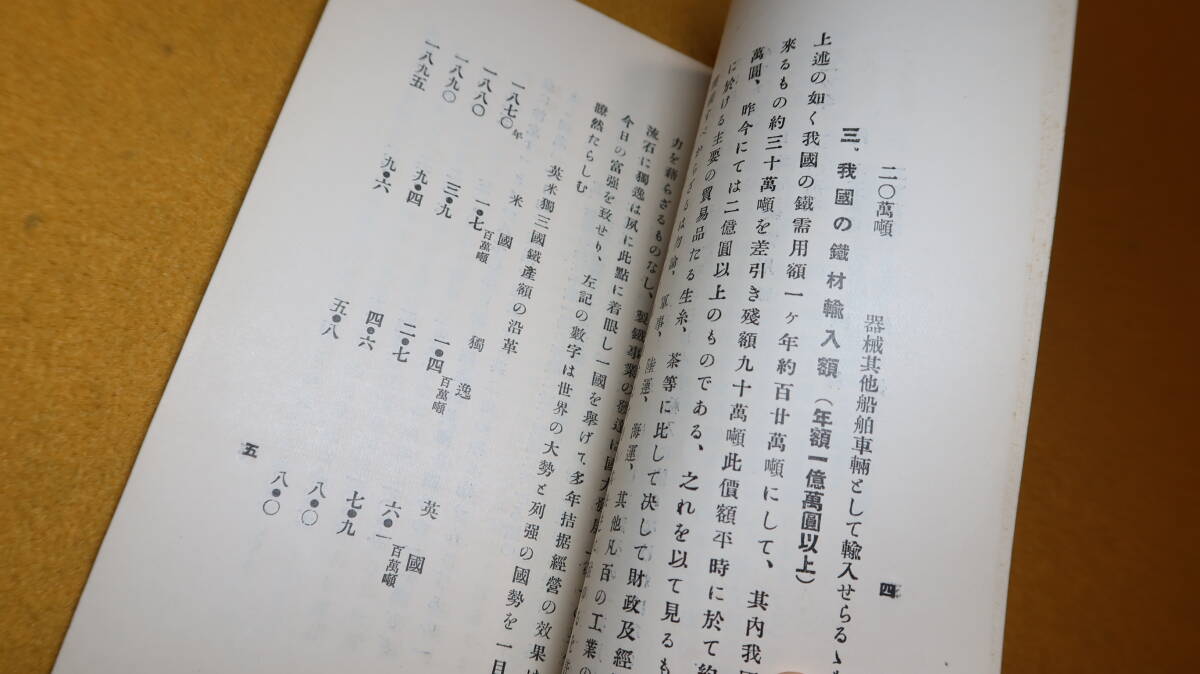 二〇萬噸
器械其他船舶車輛として輸入せらるゝも
四
三、我國の鐵材輸入額（年額一億萬圓以上）
上述の如く我國の鐵需用額一ヶ年約百廿萬噸にして、其內我國
來るもの約三十萬噸を差引き殘額九十萬噸此價額平時に於て約
萬圓、昨今にては二億圓以上のものである、之れを以て見るも
に於ける主要の貿易品たる生糸、茶等に比して决して財政及經
勿論、軍事、陸運、海運、其他凡百の工業の
力を藉らざるものなし、製鐵事業の發達は國
流石に獨逸は夙に此點に着眼し一國を擧げて多年拮据經營の効果は
今日の富强を致せり、左記の數字は世界の大勢と列强の國勢を一目
瞭然たらしむ
英米獨三國鐵產額の沿革
米國 獨逸 英國
一八七〇年 一・七百萬噸 一・四百萬噸 六・一百萬噸
一八八〇 三・九 二・七 七・九
一八九〇 九・四 四・六 八・〇
一八九五 九・六 五・八 八・〇
五